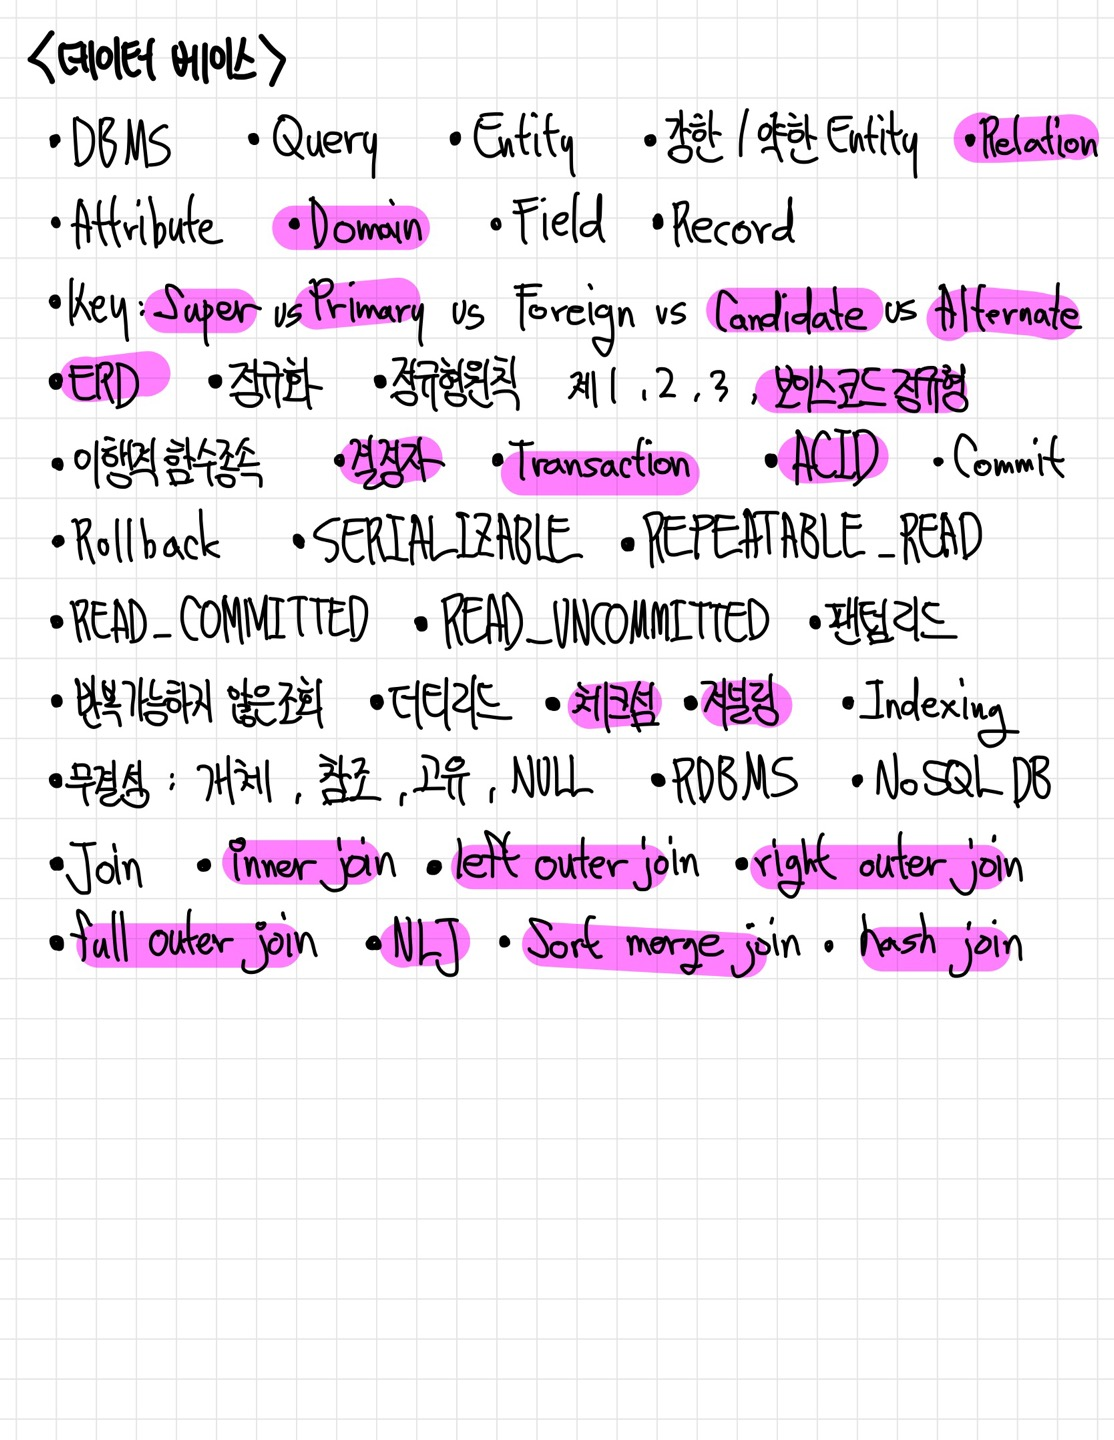 <데이터 베이스>
• DBMS • Query • Entity • 강한 / 약한 Entity • Relation
• Attribute • Domain • Field • Record
• Key : Super vs Primary vs Foreign vs Candidate vs Alternate
• ERD • 정규화 • 정규형원칙 제1, 2, 3, 보이스코드 정규형
• 이행적 함수종속 • 결정자 • Transaction • ACID • Commit
• Rollback • SERIALIZABLE • REPEATABLE_READ
• READ_COMMITTED • READ_UNCOMMITTED •팬텀리드
• 반복가능하지 않은조회 • 더티리드 • 체크섬 • 저널링 • Indexing
• 무결성 : 개체, 참조, 고유, NULL • RDBMS • NoSQL DB
• Join • inner join • left outer join • right outer join
• full outer join • NLJ • Sort merge join • hash join